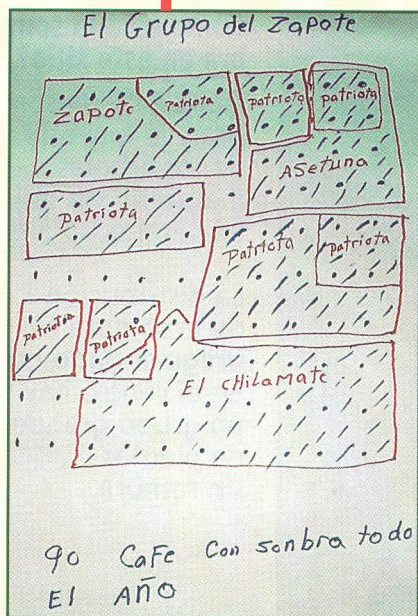 El Grupo del Zapote
Zapote
Patriota
Patriota
Patriota
ASetuna
Patriota
Patriota
Patriota
Patriota
Patriota
El CHilamate
90 Cafe Con sonbra todo
El AÑO